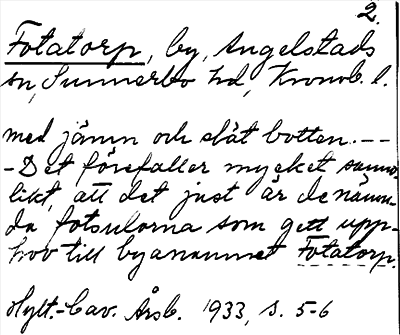 2.
Fotatorp, by, Angelstads
sn, Sunnerbo hd, Kronob. l.
med jämn och slät botten. ---
-Det förefaller mycket sanno-
likt, att det just är de nämn-
da fotsulorna som gett upp-
hov till byanamnet Fotatorp.
Hylt.-Cav. Årsb. 1933, s. 5-6